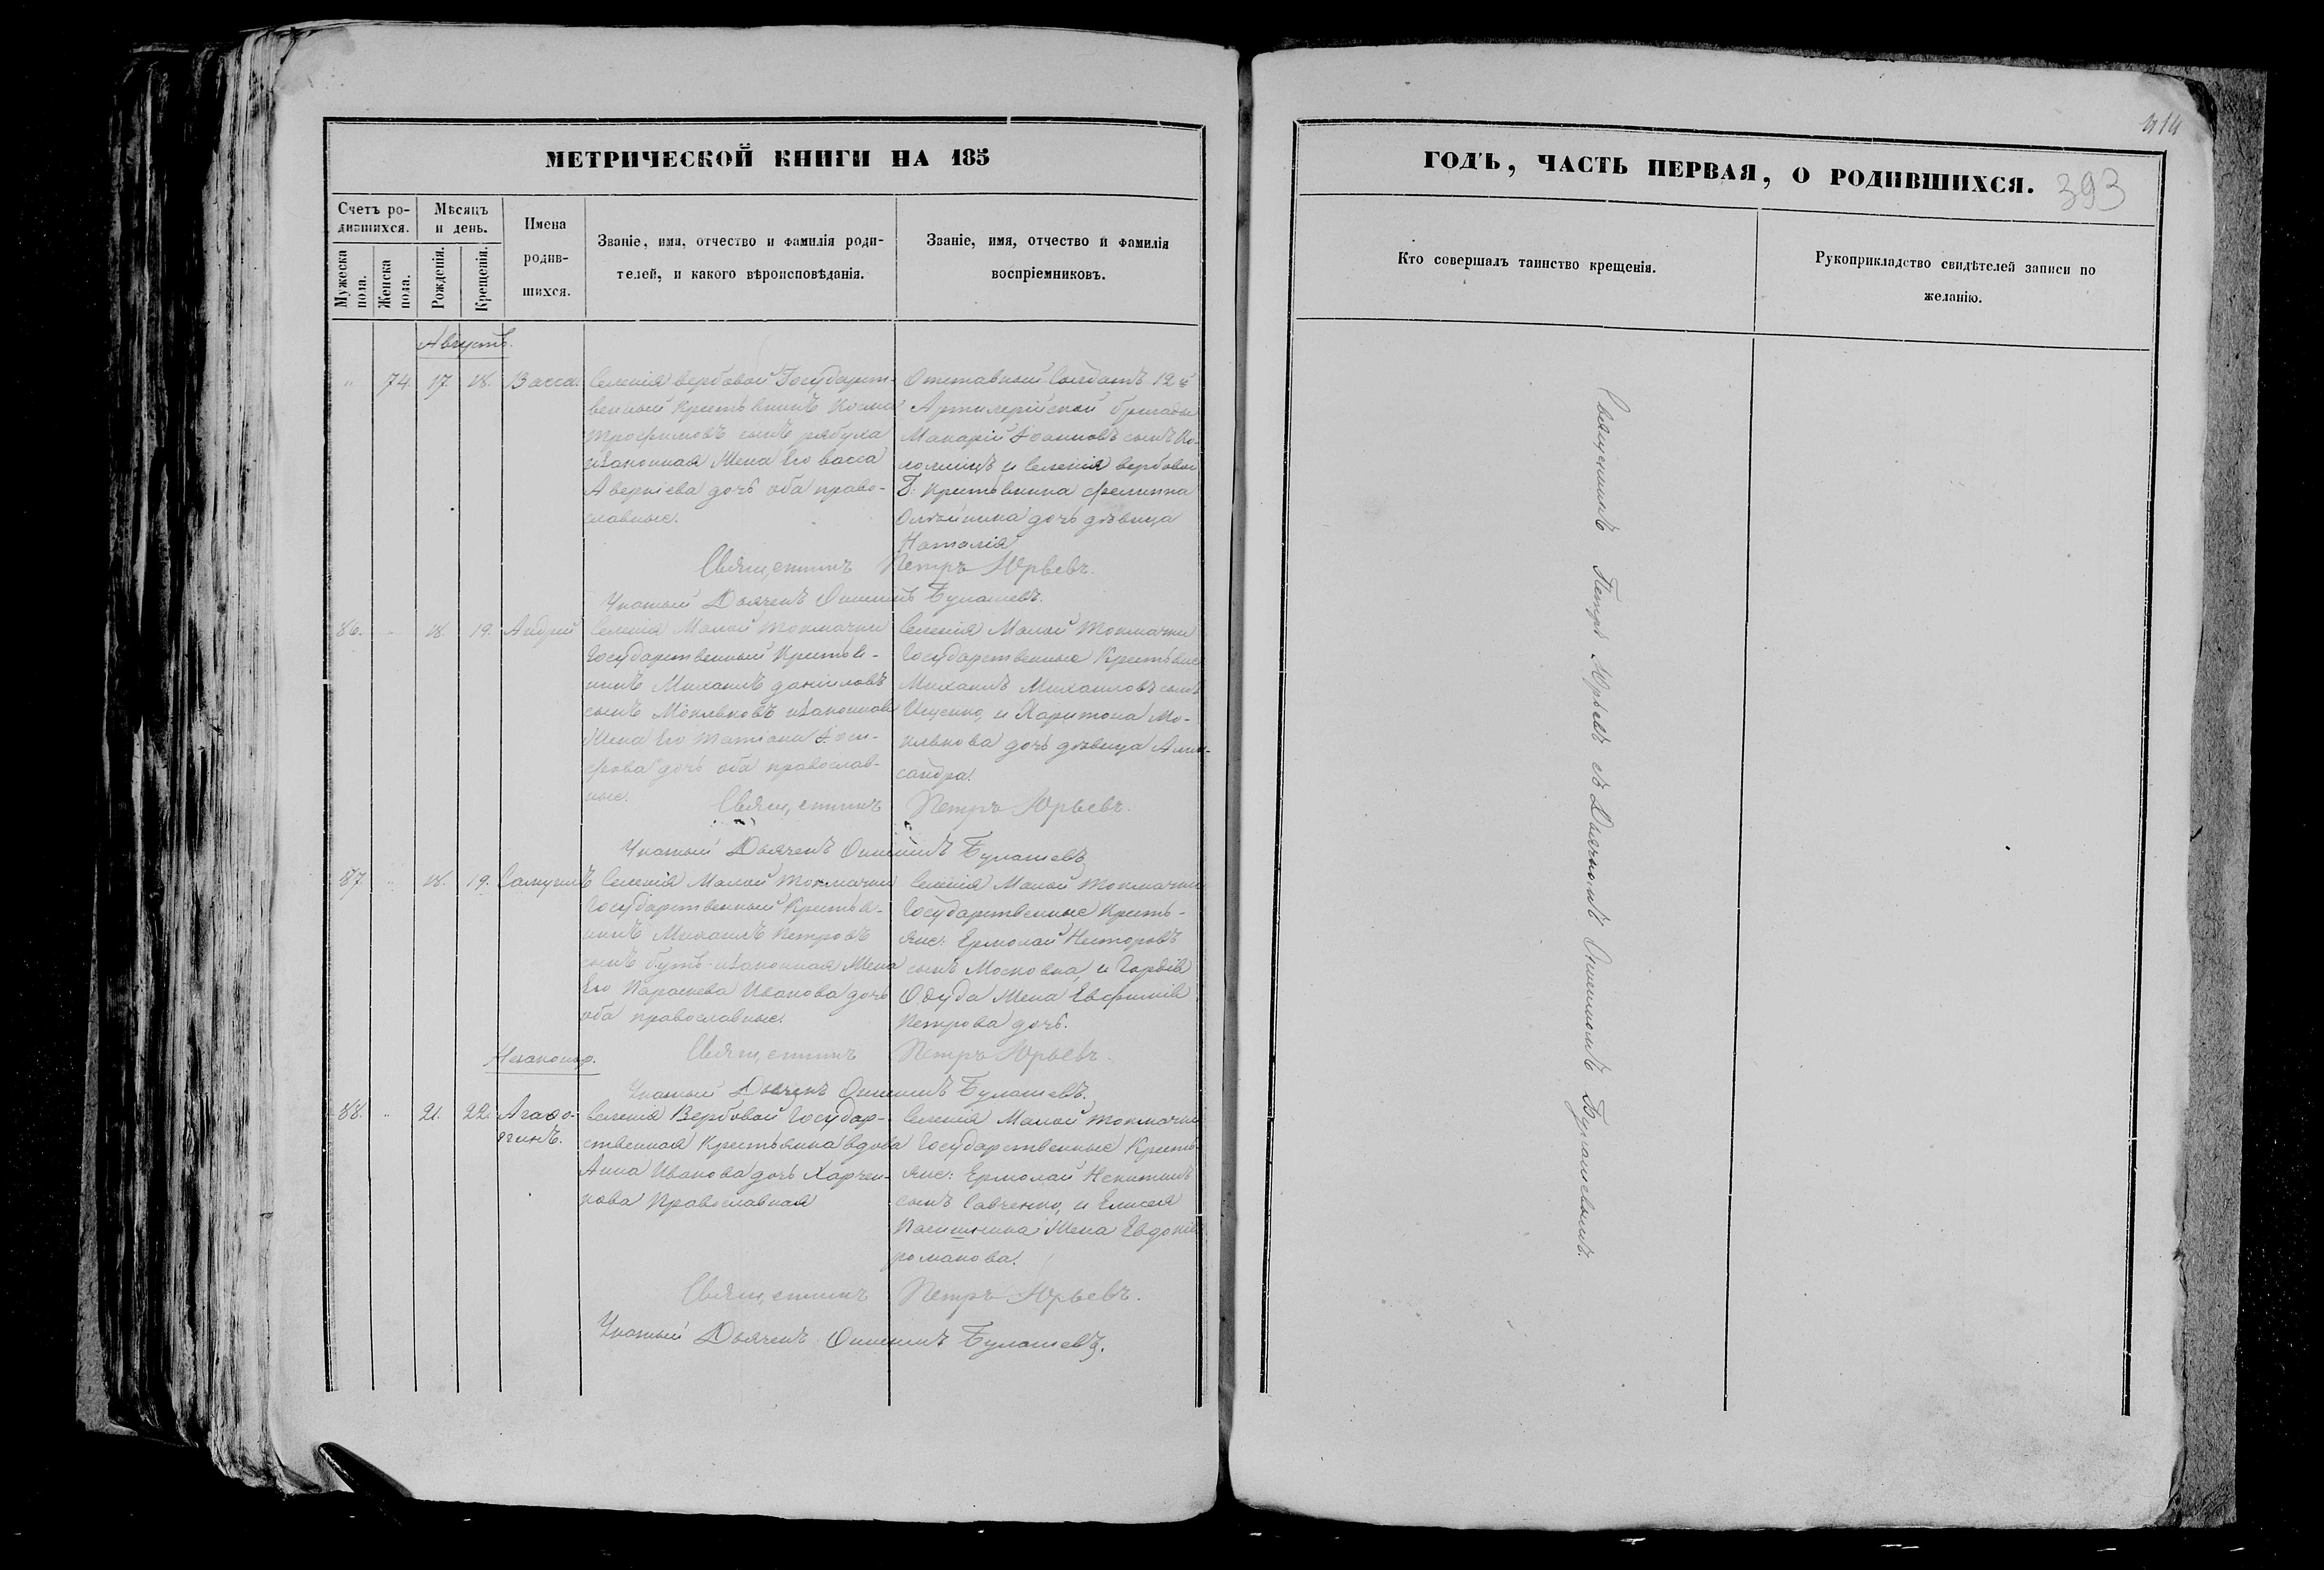 МЕТРИЧЕСКОЙ КНИГИ НА 185
Счетъ ро-
дившихся.
Мѣсяцъ
и день.
Мужеска
пола.
Женска
пола.
Рожденія.
Крещенія.
Имена
родив-
шихся.
Званіе, имя, отчество и фамилія роди-
телей, и какого вѣроисповѣданія.
Званіе, имя, отчество и фамилія
воспріемниковъ.
Августъ.
" 74. 17. 18. Васса.
Селенія Вербовой Государст-
венный Крестьянинъ Косма
Трофимовъ сынъ Рябуха
изаконная Жена Его Васса
Аверкіева дочь оба право-
славные.
Отставный Солдатъ 12й
Артилерійской бригады
Макарій Іоанновъ сынъ Ко-
ломіецъ и Селенія Вербовой
Г. Крестьянина Филиппа
Олѣйника дочь дѣвица
Наталія
Священникъ Петръ Юрьевъ.
Указный Дьячекъ Онисимъ Булашевъ.
86. " 18. 19. Андрей
Селенія Малой Токмачки
Государственный Крестья-
нинъ Михаилъ Даніиловъ
сынъ Мокляковъ изаконная
Жена Его Татіана Іоси-
фова дочь оба православ-
ные.
Селенія Малой Токмачки
Государственные Крестьяне
Михаилъ Михаиловъ сынъ
Ищенко, и Харитона Мо-
клякова дочь дѣвица Алек-
сандра.
Священникъ Петръ Юрьевъ.
Указный Дьячекъ Онисимъ Булашевъ
87. " 18. 19. Самуилъ
Селенія Малой Токмачки
Государственный Крестья-
нинъ Михаилъ Петровъ
сынъ Бутъ изаконная Жена
Его Параскева Иванова дочь
оба православные.
Селенія Малой Токмачки
Государственные Кресть-
яне: Ермолай Несторовъ
сынъ Московка, и Гордѣя
Обуда Жена Евфимія
Петрова дочь.
Священникъ Петръ Юрьевъ.
Указный Дьячекъ Онисимъ Булашевъ.
Незаконор.
88. " 21. 22. Агаѳо-
Селенія Вербовой Государ-
ственная Крестьянка вдова
Анна Иванова дочь Харчен-
кова Православная
Селенія Малой Токмачки
Государственные Кресть-
яне: Ермолай Никитинъ
сынъ Савченко, и Елисея
Жена Евдокія
Романова.
Священникъ Петръ Юрьевъ.
Указный Дьячекъ Онисимъ Булашевъ.
414
ГОДЪ, ЧАСТЬ ПЕРВАЯ, О РОДИВШИХСЯ.
393
Кто совершалъ таинство крещенія.
Рукоприкладство свидѣтелей записи по
желанію.
Священникъ Петръ Юрьевъ съ Дьячкомъ Онисимомъ Булашевымъ.